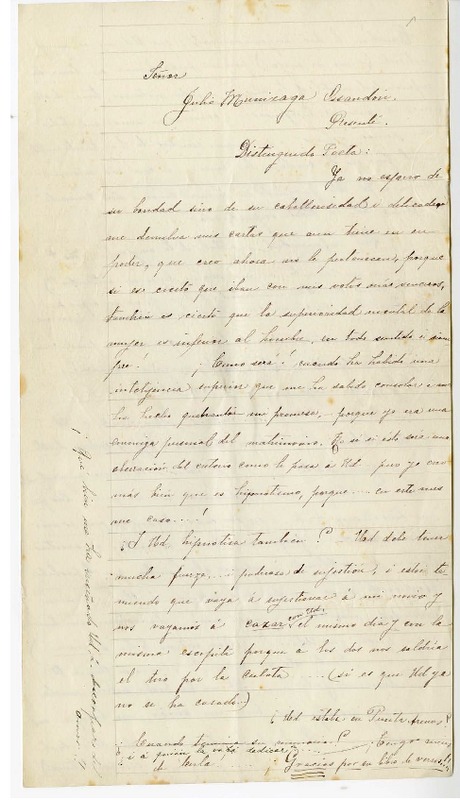 Señor
Julio Munizaga Ossandón.
Presente.
Distinguido Poeta:
Ya no espero de
su bondad sino de su caballerosidad i delicadeza
me devuelva mis cartas que aun tiene en su
poder, que creo ahora no le pertenecen, porque
si es cierto que iban con mis votos mas sinceros,
tambien es cierto que la superioridad mental de la
mujer es inferior al hombre, en todo sentido i siem
pre! ¡Como será! cuando ha habido una
inteligencia superior que me ha sabido consolar i me
ha hecho quebrantar mi promesa, porque yo era una
enemiga personal del matrimonio. si esto sea una
aberración del cutorno como le pasa á Ud. pero yo creo
mas bien que es hipnotismo, porque.... en este mes
me caso....!
¿I Ud. hipnotiza tambien? Ud debe tener
mucha fuerza... i poderosa de sujestión!, i estoi te
miendo que vaya á sujestionar á mi novio y
nos vayamos á cazar con Ud. el mismo dia y con la
misma escopeta porque á los dos nos saldria
el tiro por la culata .... (si es que Ud ya
no se ha casado.)
¿Ud estaba en Punta Arenas?
Cuando
i á quién la vaya dedicar
Tengo
de Gracias por su libro de versos!!
¡Qué bien me ha enseñado Ud á
amor!